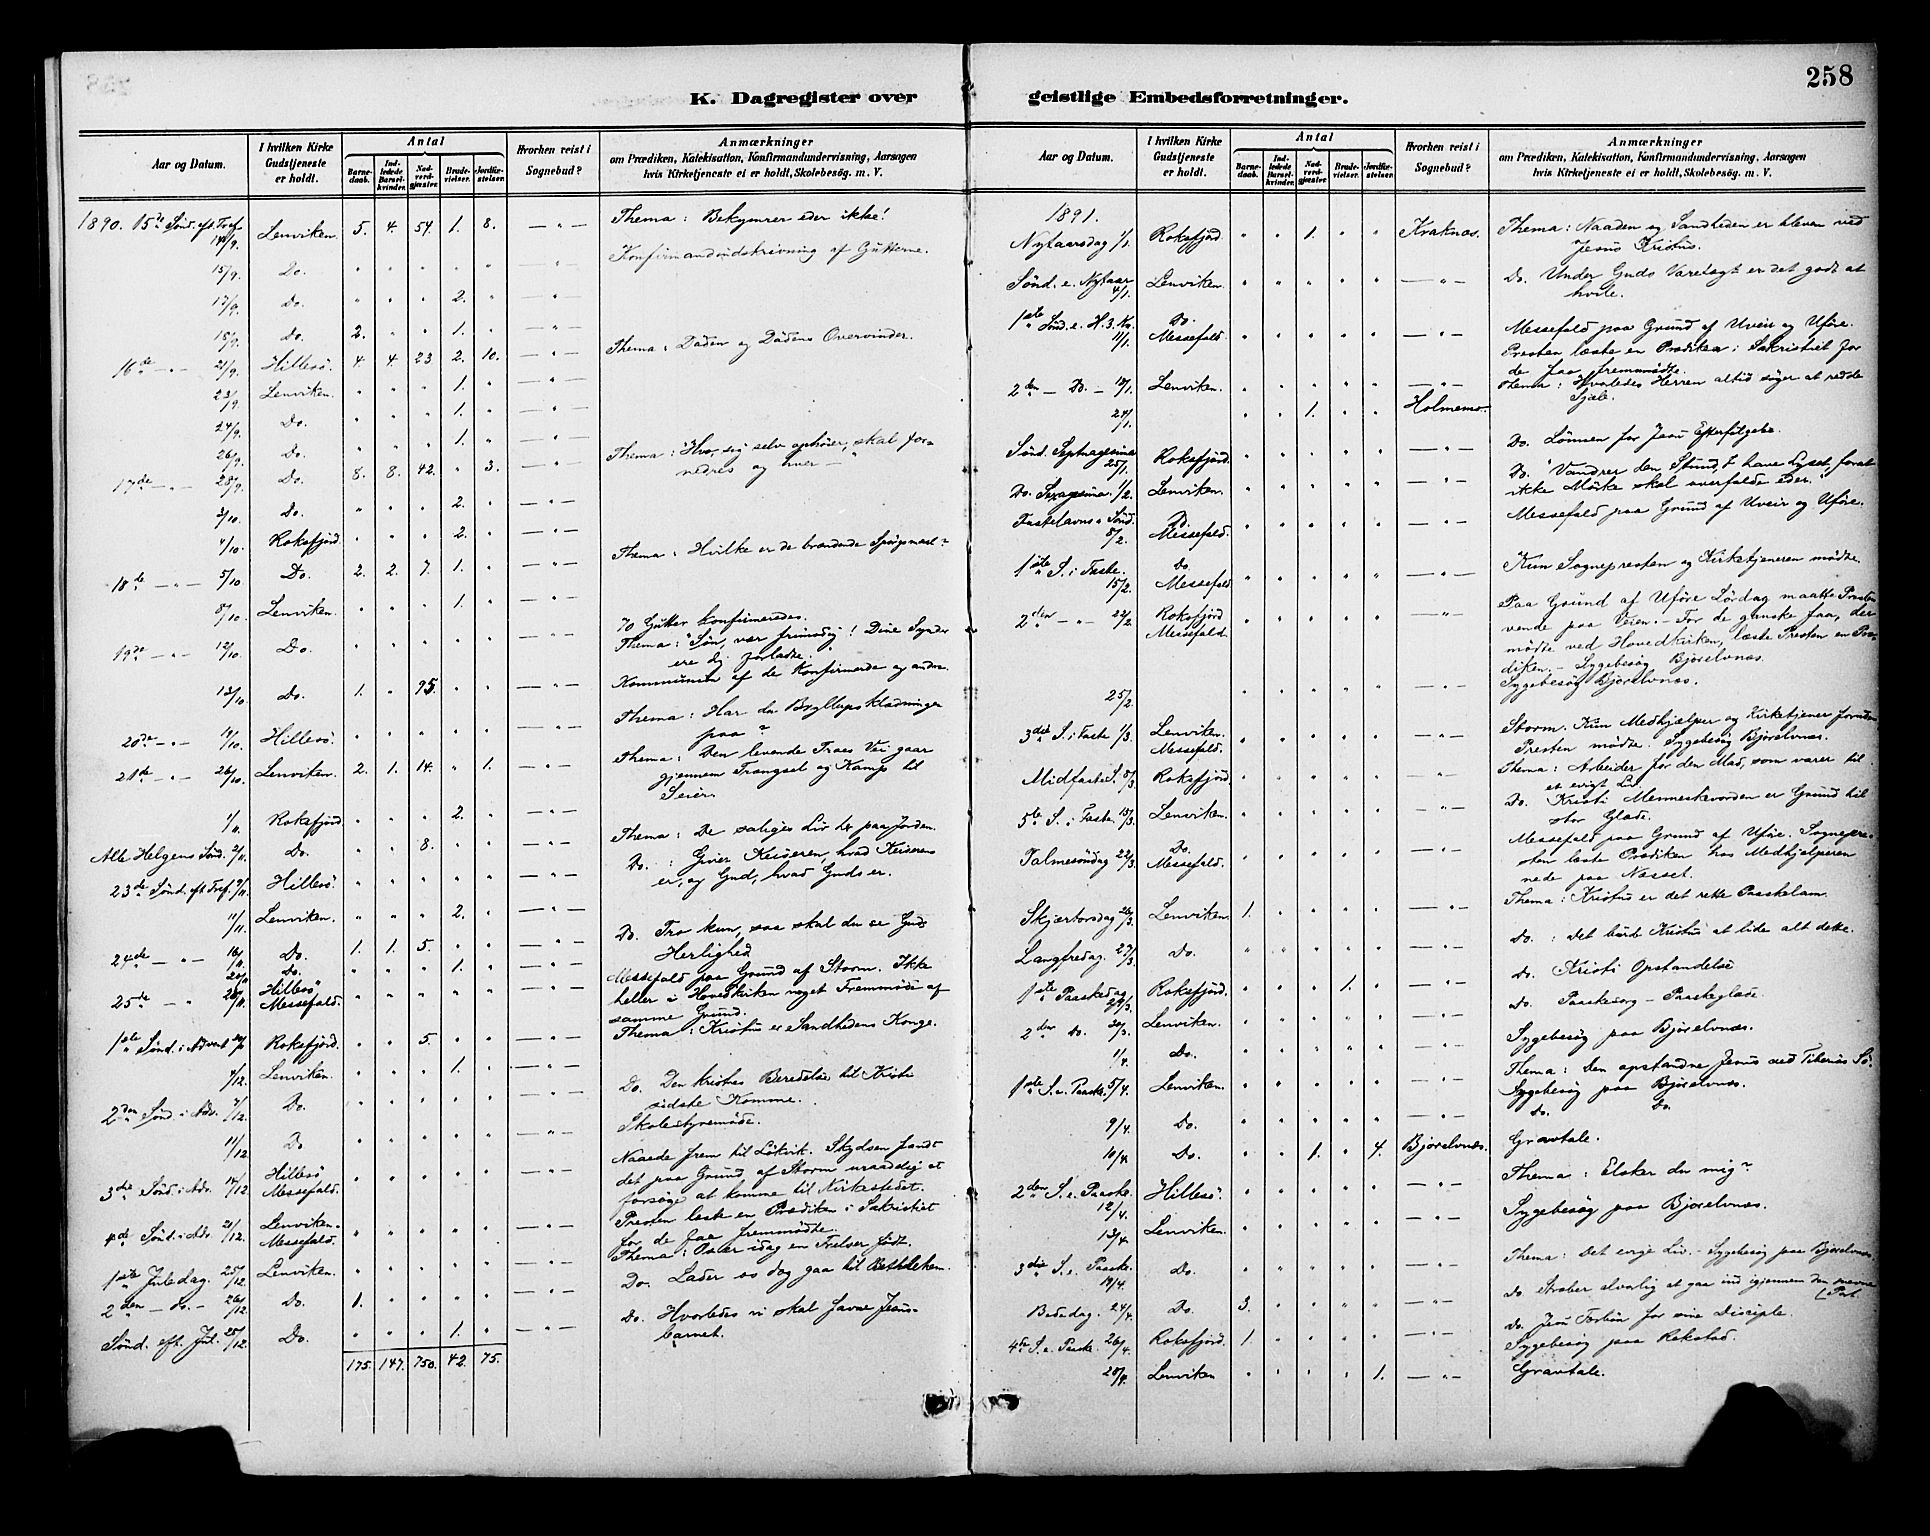 258
K. Dagregister over geistlige Embedsforretninger.
Aar og Datum. I hvilken Kirke Gudstjeneste er holdt. Antal Barnedaab. Indledede Barselkvinder. Nadverdgjæster. Brudevielser. Jordfæstelser. Hvorhen reist i Sognebud? Anmærkninger om Prædiken, Katekisation, Konfirmandundervisning, Aarsagen hvis Kirketjeneste ei er holdt, Skolebesøg. m. V.
1890. 15de Sönd. eft. Tref. 14/9. Lenviken. 5. 4. 54. 1. 8. — " — Thema: Bekymrer eder ikke!
15/9. Do. " " " " " — " — Konfirmandudskrivning af Gutterne.
17/9. Do. " " " 2. " — " —
18/9. Do. 2. " " 1. " — " —
16de — " — 21/9. Hillesö. 4. 4. 23 2. 10. — " — Thema: Döden og Dödens Overvinder.
23/9. Lenviken. " " " 1. " — " —
24/9. Do. " " " 1. " — " —
26/9. Do. " " " 1. " — " —
17de — " — 28/9. Do. 8. 8. 42. " 3. — " — Thema: Hvo, sig selv ophöier, skal for-
nedres og hver — "
3/10. Do. " " " 2. " — " —
4/10. Rokefjord " " " 2. " — " —
18de — " — 5/10. Do. 2. 2. 7. 1. " — " — Thema: Hvilke er de brændende Spörgsmaal?
8/10. Lenviken. " " " 1. " — " —
19de — " — 12/10. Do. " " " " " — " — 70 Gutter konfirmeredes.
Thema: "Sön, vær frimodig! Dine Synder
ere dig forladte."
13/10. Do. 1. " 95. " " — " — Kommunion af de Konfirmerede og andre.
20de — " — 19/10. Hillesö. " " " " " — " — Thema: Har du Bryllupsklædningen
paa?
21de — " — 26/10. Lenviken. 2. 1. 14. " 1. — " — Thema: Den levende Troes Vei gaar
gjennem Trængsel og Kamp til
Seier.
1/11. Rokefjord. " " " 2. " — " —
Alle Helgens Sönd. 2/11. Do. " " 8. " " — " — Thema: De saliges Liv her paa Jorden.
23de Sönd. eft. Tref. 9/11. Hillesö. " " " " " — " — Do.: Giver Keiseren, hvad Keiserens
er, og Gud, hvad Guds er.
11/11. Lenviken. " " " 2. " — " —
24de — " — 16/11. Do. 1. 1. 5. " " — " — Do. Tro kun, saa skal du se Guds
Herlighed
Do. " " " 1. " — " —
25de — " Hillesö Messefald. " " " " " — " — Messefald paa Grund af Storm. Ikke
heller i Hovedkirken noget Fremmöde af
samme Grund.
1ste Sönd. i Advent Rokefjord. " " 5. " " — " — Thema: Kristus er Sandhedens Konge.
4/12. Lenviken. " " " 1. " — " —
2den Sönd. i Adv. 7/12. Do. " " " " " — " — Do. Den kristnes Beredelse til Kristi
sidste Komme.
11/12 Do " " " " " — " — Skolestyremöde.
3die Sönd. i Adv. 14/12. Hillesö Messefald. " " " " " — " — Naaede frem til Lökvik. Skydsen fandt
det paa Grund af Storm uraadelig at
forsöge at komme til Kirkestedet.
4de Sönd. i Adv. 21/12. Lenviken. Messefald. " " " " " — " — Presten læste en Prædiken i Sakristiet
for de faa fremmödte.
1ste Juledag. 25/12. Lenviken. " " " " " — " — Thema: Os er idag en Frelser födt.
2den — Do. — 26/12. Do. 1. " " " " — " — Do. Lader os dog gaa til Bethlehem.
Sönd. eft. Jul. 28/12. Do. " " " 1. " — " — Do. Hvorledes vi skal favne Jesus-
barnet.
175. 147. 750. 42. 75.
Aar og Datum. I hvilken Kirke Gudstjeneste er holdt. Antal Barnedaab. Indledede Barselkvinder. Nadverdgjæster. Brudevielser. Jordfæstelser. Hvorhen reist i Sognebud? Anmærkninger om Prædiken, Katekisation, Konfirmandundervisning, Aarsagen hvis Kirketjeneste ei er holdt, Skolebesøg. m. V.
1891.
Nytaarsdag 1/1. Rokefjord. " " 1. " " Kraknæs. Thema: Naaden og Sandheden er bleven ved
Jesus Kristus.
Sönd. e. Nytaar 4/1. Lenviken. " " " " " — " — Do. Under Guds Varetægt er det godt at
hvile.
1ste Sönd. e. H. 3. K. 11/1. Do. Messefald. " " " " " — " — Messefald paa Grund af Uveir og Uföre.
Presten læste en Prædiken i Sakristiet for
de faa fremmödte.
2den — Do. — 18/1. Lenviken. " " " " " — " — Thema: Hvorledes Herren altid söger at redde
Sjæle.
24/1. " " 1. " " Holmenes.
Sönd. Septuagesima 25/1. Rokefjord. " " " " " — " — Do. Lönnen for Jesu Efterfölgelse.
Do. Sexagesima. 1/2. Lenviken. " " " " " — " — Do. "Vandrer den Stund, I have Lyset, forat
ikke Mörke skal overfalde eder."
Fastelavns Sönd. 8/2. Do Messefald. " " " " " — " — Messefald paa Grund af Uveir og Uföre.
1ste S. i Faste. 15/2. Do. Messefald " " " " " — " — Kun Sognepresten og Kirketjeneren mödte.
2den — " — 22/2. Rokefjord Messefald. " " " " " — " — Paa Grund af Uföre Lördag maatte Presten
vende paa Veien. – For de ganske faa, der
mödte ved Hovedkirken, læste Presten en Præ-
diken. – Sygebesög Bjorelvnæs.
25/2. " " " " " — " — Sygebesög Bjorelvnæs.
3die S. i Faste 1/3. Lenviken. Messefald. " " " " " — " — Storm. Kun Medhjælper og Kirketjener foruden
Presten mödte. Sygebesög Bjorelvnæs.
Midfaste S. 8/3. Rokefjord. " " " " " — " — Thema: Arbeider for den Mad, som varer til
et evigt Liv.
5te S. i Faste. 15/3. Lenviken. " " " " " — " — Do. Kristi Menneskevorden er Grund til
stor Glæde.
Palmesöndag 22/3. Do. Messefald. " " " " " — " — Messefald paa Grund af Uföre. Sognepre-
sten læste Prædiken hos Medhjelperen
nede paa Næsset.
Skjærtorsdag 26/3. Lenviken. 1. " " " " — " — Thema: Kristus er det rette Paaskelam.
Langfredag. 27/3. Do. " " " " " — " — Do.: Det burde Kristus at lide alt dette.
1ste Paaskedag 29/3. Rokefjord. " " " 1. " — " — Do. Kristi Opstandelse
2den Do. 30/3. Lenviken. " " " " " — " — Do. Paaskesorg – Paaskeglæde.
1/4. Do. " " " " " — " — Sygebesög paa Bjorelvnæs.
1ste S. e. Paaske. 5/4. Lenviken. " " " " " — " — Thema: Den opstandne Jesus ved Tiberias Sö.
Sygebesög paa Bjorelvnæs.
9/4. Do. " " " " " — " — Do. Do.
10/4. Do. " " 1. " 4. Bjorelvnæs. Gravtale.
2den S. e. Paaske. 12/4. Hillesö. " " " " " — " — Thema: Elsker du mig?
13/4. Lenviken. " " " " " — " — Sygebesög paa Bjorelvnæs.
3die S. e. Paaske. 19/4. Do. " " " " " — " — Thema: Det evige Liv. – Sygebesög paa Bjorelvnæs.
Bededag. 24/4. Do. 3. " " " " — " — Do. Stræber alvorlig at gaa ind igjennem den snevre
Port.
4de S. e. Paaske. 26/4. Rokefjord. 1. " " " " — " — Do. Jesu Forbön for sine Disciple.
Sygebesög paa Rekstad.
28/4. Lenviken " " " " 1. — " — Gravtale.